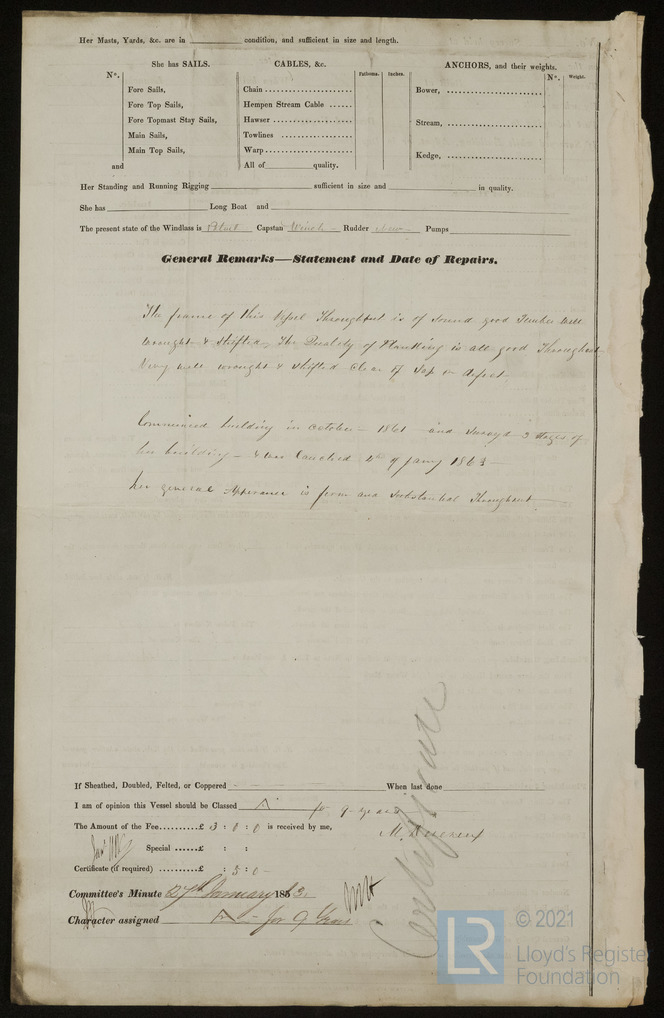 Her Masts, Yards, &c. are in condition, and sufficient in size and length.
She has SAILS.
N°.
Fore Sails,
Fore Top Sails,
Fore Topmast Stay Sails,
Main Sails,
Main Top Sails,
and
CABLES, &c.
Fathoms. Inches.
Chain
Hempen Stream Cable
Hawser
Towlines
Warp
All of quality.
ANCHORS, and their weights.
N°. Weight.
Bower,
Stream,
Kedge,
Her Standing and Running Rigging sufficient in size and in quality.
She has Long Boat and
The present state of the Windlass is Capstan Winch Rudder Pumps
General Remarks—Statement and Date of Repairs.
The frame of this Vessel Throughout is of sound good Timber well
wrought & shifted, The Quality of Planking is all good Throughout
Very well wrought & shifted Clear of Sap or defect
Commenced building in October – 1861 and Surveyd 3 Stages of
her building – & was Launched of Jany 1863 –
her general Apperance is firm and substantial Throughout
If Sheathed, Doubled, Felted, or Coppered When last done
I am of opinion this Vessel should be Classed A for 9 years
The Amount of the Fee..........£ 3 : 0 : 0 is received by me,
Special ......£ : :
Certificate (if required) ......£ : 5 : 0 –
Committee's Minute 27th January 1863.
Character assigned A – for 9 Years
Certificate
© 2021
LR
Lloyd's Register
Foundation